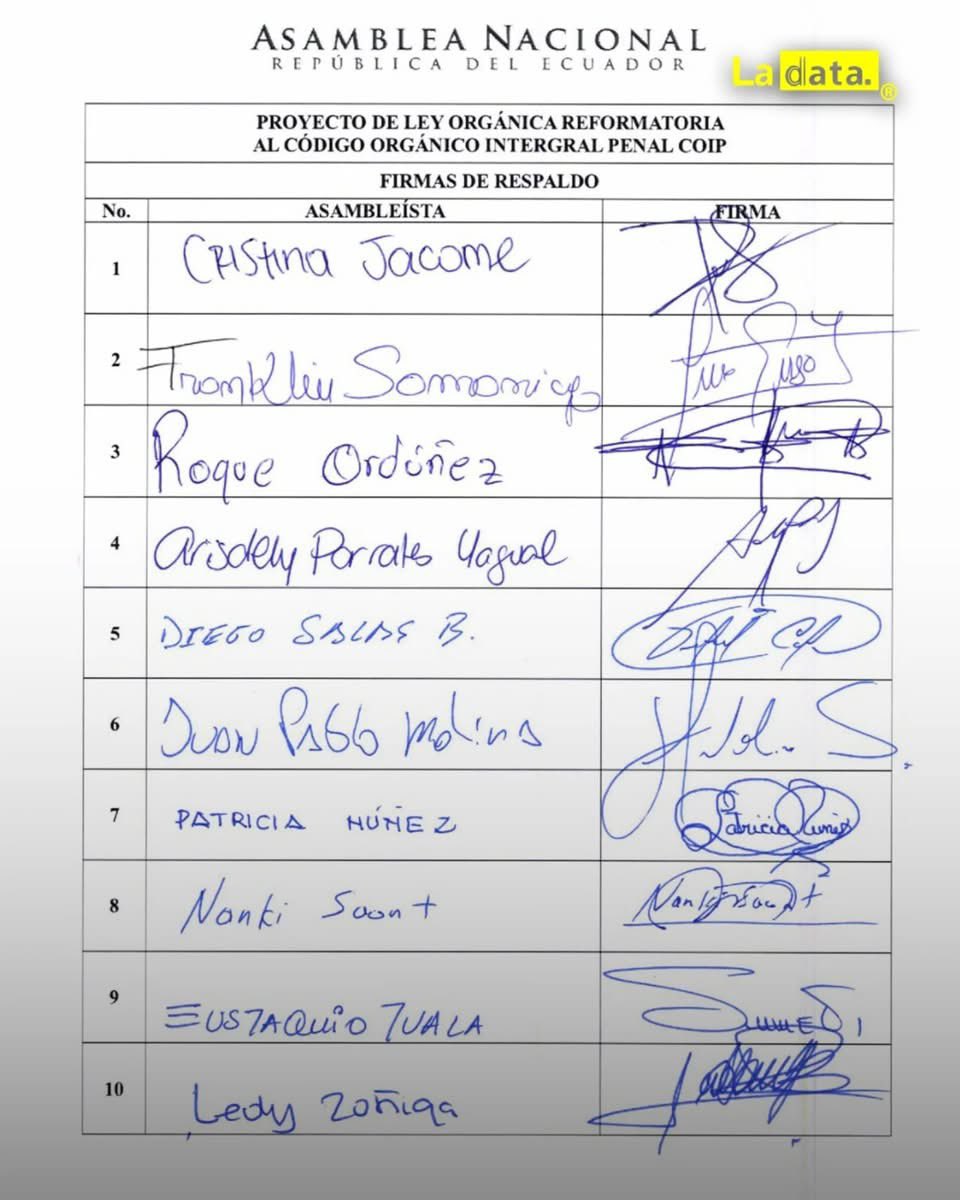 ASAMBLEA NACIONAL
REPÚBLICA DEL ECUADOR
La data.®
PROYECTO DE LEY ORGÁNICA REFORMATORIA
AL CÓDIGO ORGÁNICO INTERGRAL PENAL COIP
FIRMAS DE RESPALDO
No. ASAMBLEÍSTA FIRMA
1 Cristina Jacome
2 Franklin Samaniego
3 Roque Ordóñez
4 Arisdely Parrales Yagual
5 DIEGO SALAS B.
6 Juan Pablo Molina
7 PATRICIA NÚÑEZ Patricia Nuñez
8 Nanki Saant Nanki Saant
9 EUSTAQUIO TUALA
10 Ledy Zúñiga